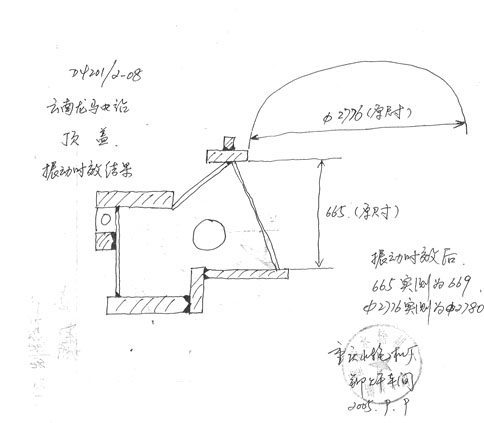 D4201/2-08
云南龙马电站
顶盖
振动时效结果
φ2776(原尺寸)
665.(原尺寸)
振动时效后
665实测为669.
φ2776实测为φ2780
重庆水轮机厂
铆工车间
2005.9.9